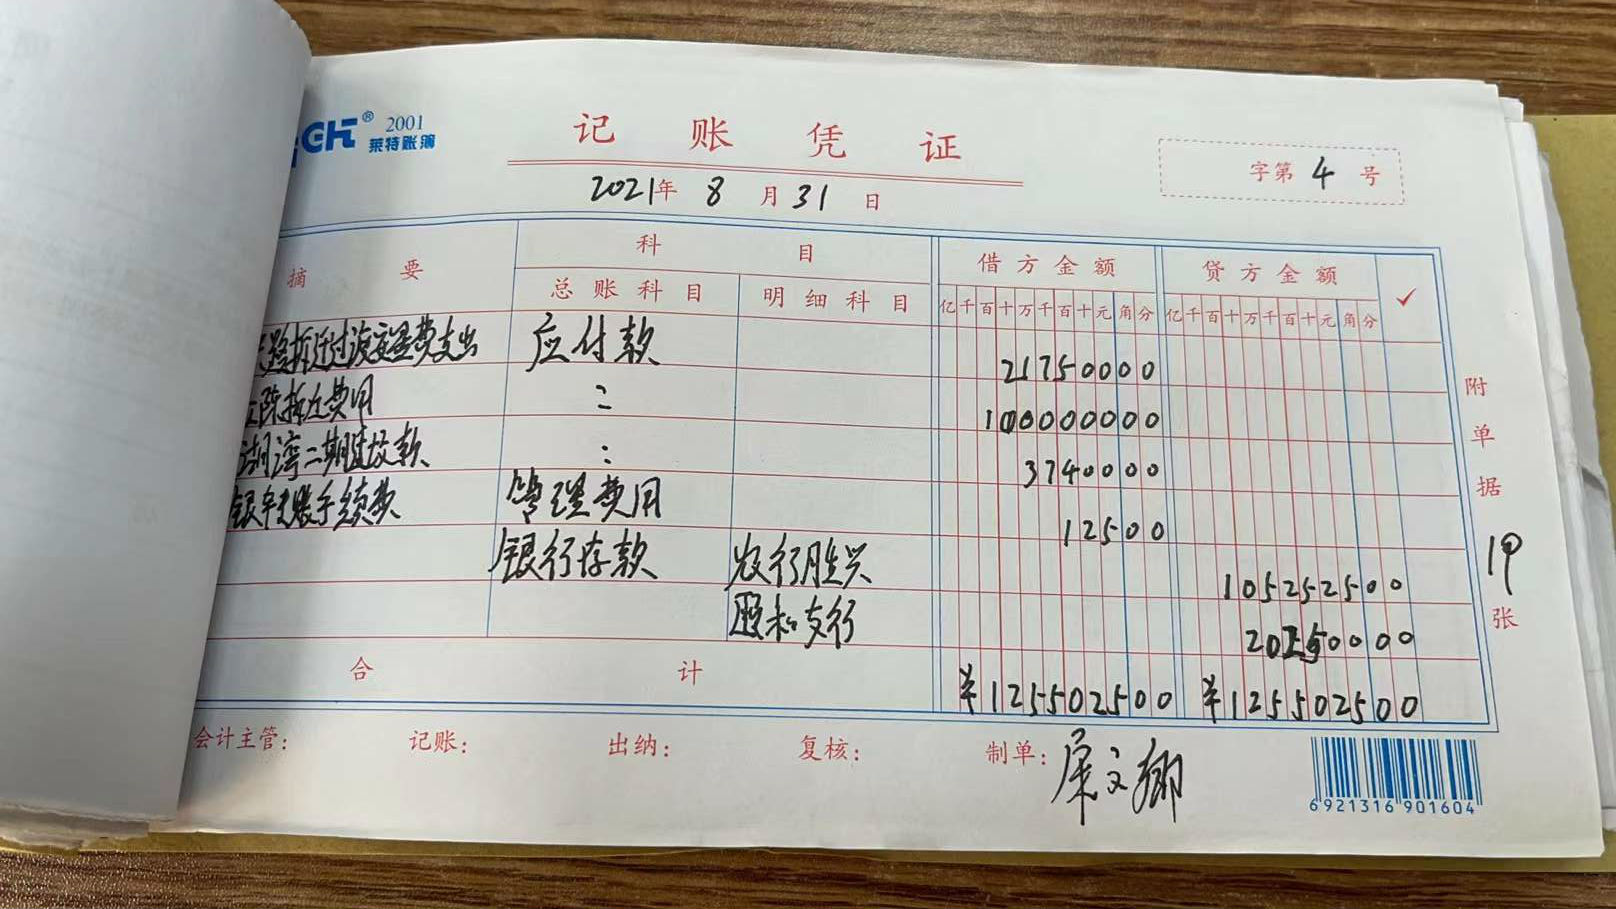 2001
莱特账簿
记账凭证
字第 4 号
2021年 8月31日
摘要 科目 借方金额 贷方金额 ✓
总账科目 明细科目 亿千百十万千百十元角分 亿千百十万千百十元角分
拆迁过渡安置费支出 应付款 21750000
拆迁费用 〃 100000000
湖湾二期 款 〃 3740000
手续费 管理费用 12500
银行存款 农行胜兴 105252500
支行 20250000
合计 ¥125502500 ¥125502500
附单据 19 张
会计主管: 记账: 出纳: 复核: 制单: 屠文娜
6921316901604